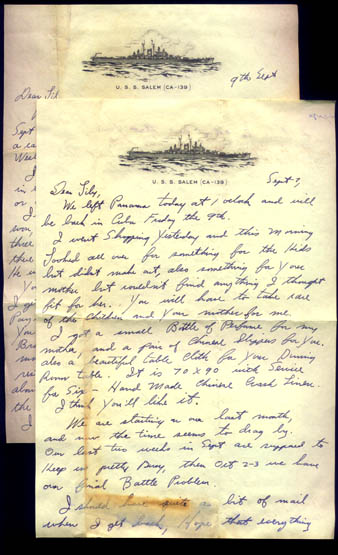 U. S. S. SALEM (CA-139)
9th Sept
Dear Sily
Sept
U. S. S. SALEM (CA-139)
Sept 7,
Dear Sily,
We left Panama today at 1 oclock and will
be back in Cuba Friday the 9th.
I went Shopping Yesterday and this Morning
looked all over for something for the Kids
but didnt make out, also something for Your
mother but couldnt find anything I thought
fit for her. You will have to take care
of the Children and Your mother for me.
I got a small Bottle of Perfume for my
mother, and a pair of Chinese Slippers for You.
also a beautiful table Cloth for Your Dinning
Room table. It is 70 x 90 with Service
for Six - Hand Made Chinese Linen.
I think You'll like it.
We are starting on our last month,
and now the time seems to drag by.
Our last two weeks in Sept are supposed to
Keep us pretty Busy, then Oct 2-3 we have
our final Battle Problem.
I should have quite a bit of mail
when I get back, Hope that everything